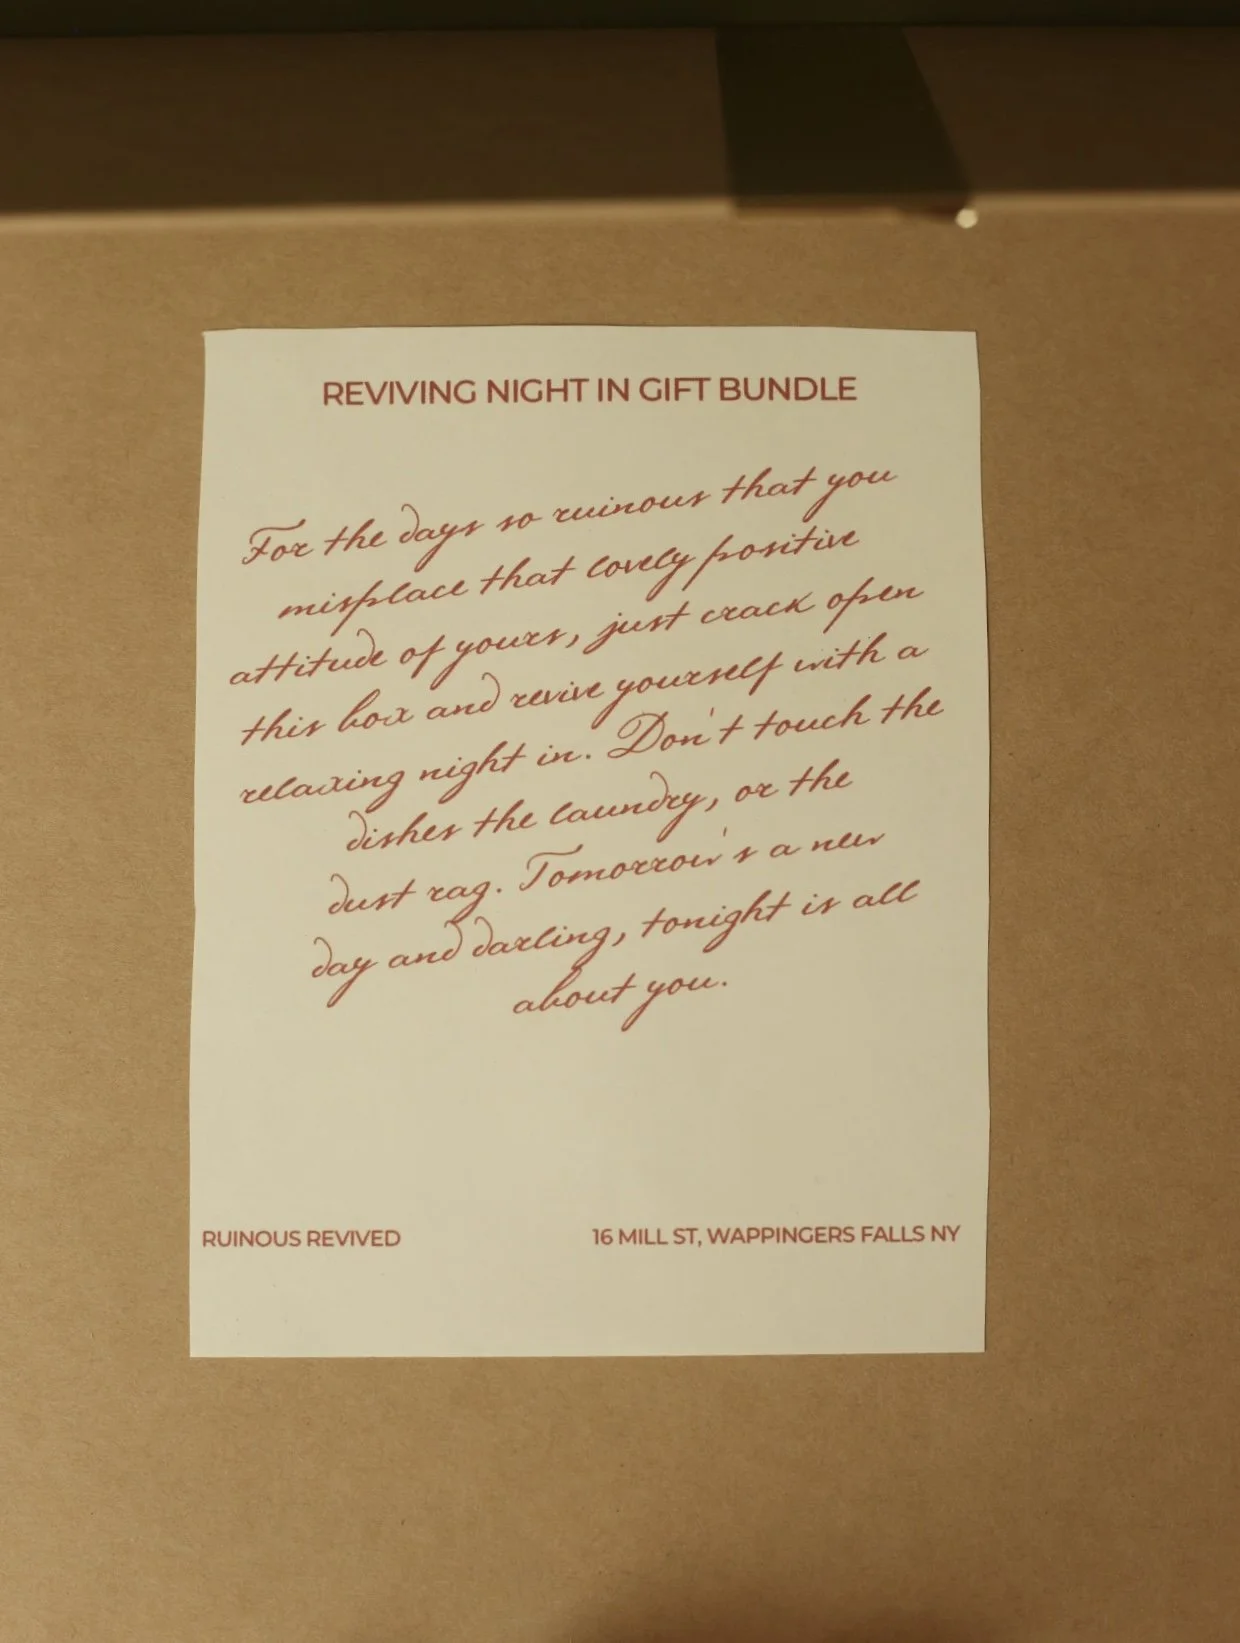 REVIVING NIGHT IN GIFT BUNDLE
For the days so ruinous that you
misplace that lovely positive
attitude of yours, just crack open
this box and revive yourself with a
relaxing night in. Don't touch the
dishes the laundry, or the
dust rag. Tomorrow's a new
day and darling, tonight is all
about you.
RUINOUS REVIVED
16 MILL ST, WAPPINGERS FALLS NY